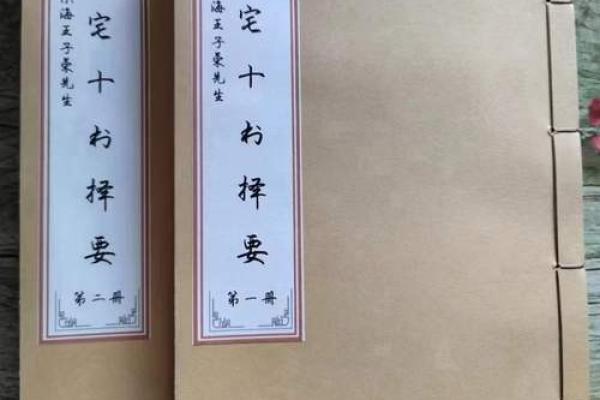 宅十书择要
第一册
海王子荣先生
宅十书择要
第二册
海王子荣先生